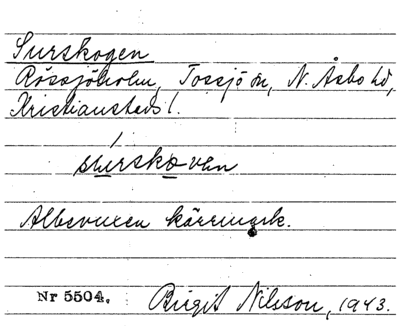 Surskogen
Rössjöholm, Tossjö sn, N. Åsbo hd,
Kristianstads l.
surskoven
Albevuxen kärringsk.
Nr 5504. Birgit Nilsson, 1943.